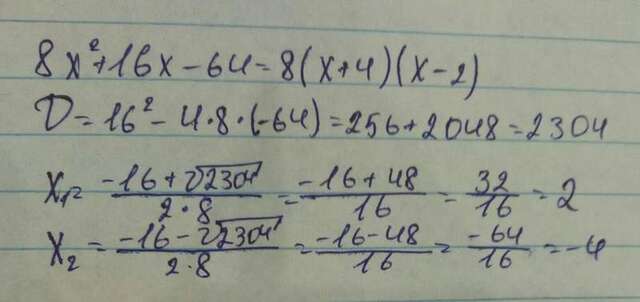 8x²+16x-64=8(x+4)(x-2)
D=16²-4·8·(-64)=256+2048=2304
x₁= (-16+√2304)/(2·8) = (-16+48)/16 = 32/16 = 2
x₂ = (-16-√2304)/(2·8) = (-16-48)/16 = -64/16 = -4